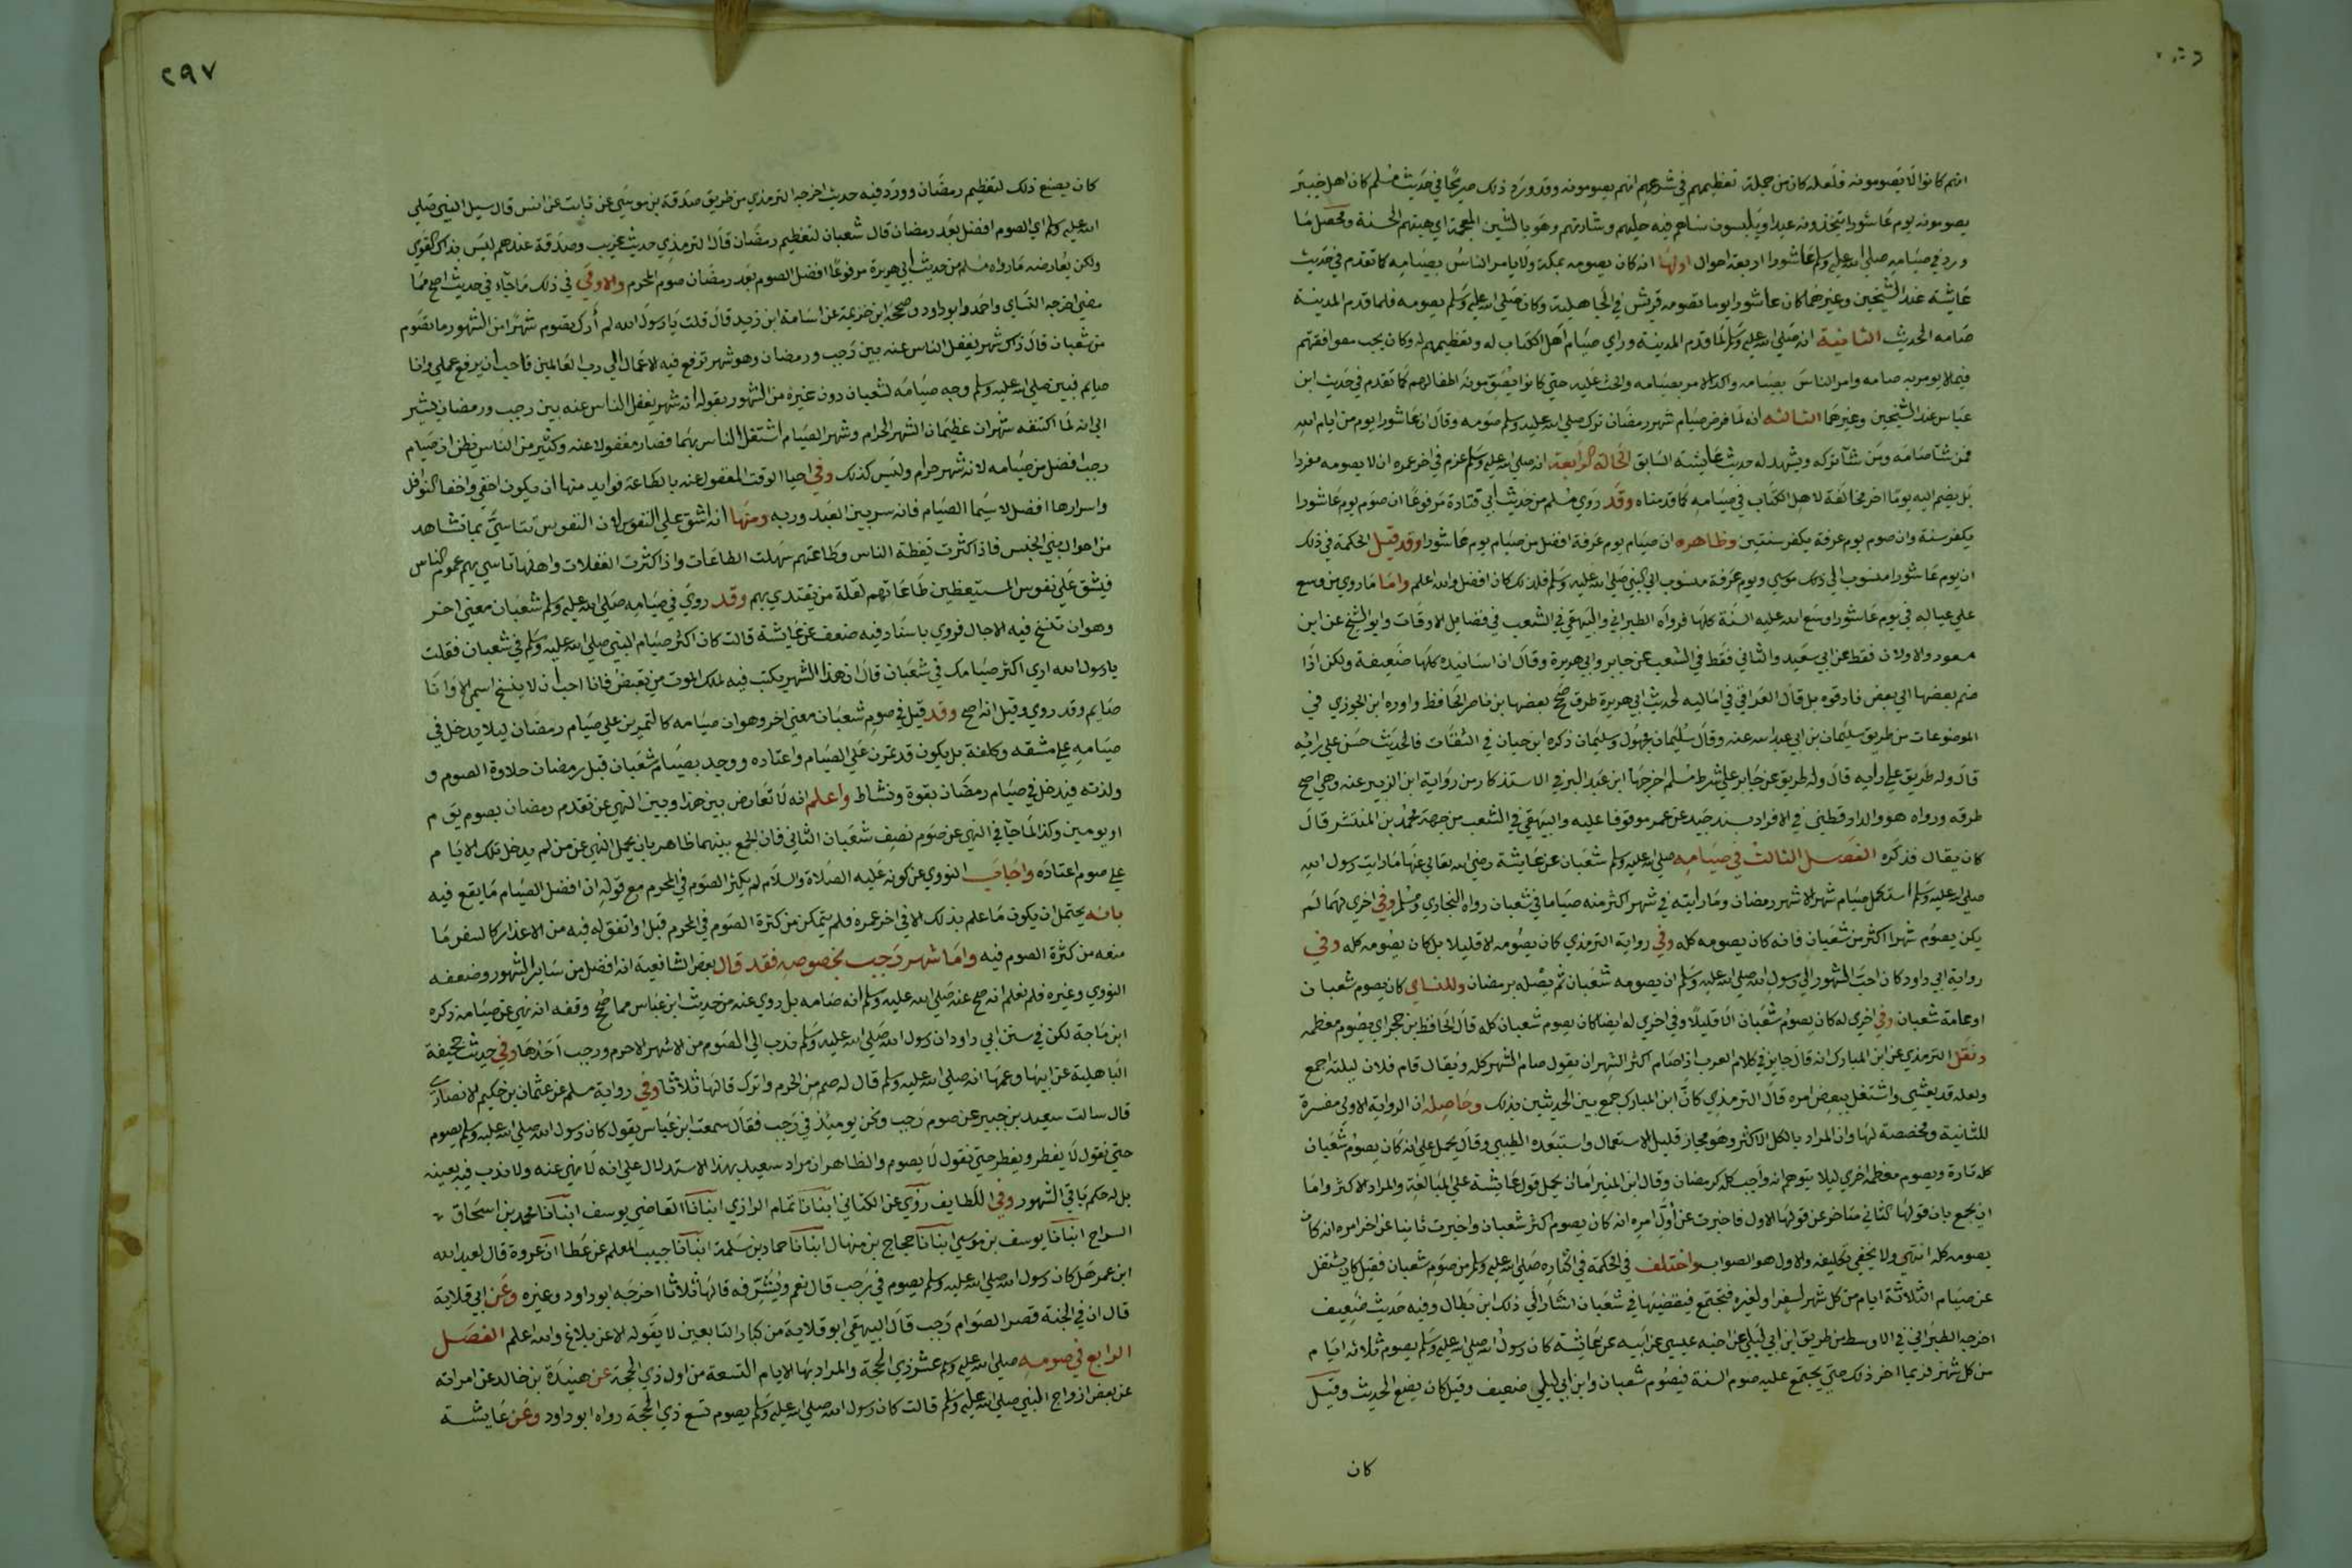 انهم كانوا لا يصومونه فلعله كان من جملة تعظيمهم في شرعهم انهم يصومونه وقد ورد ذلك صريحا في حديث مسلم كان اهل خيبر
يصومونه يوم عاشورا يتخذونه عيدا ويلبسون نساهم فيه حليهم وشارتهم وهو بالشين المعجمة اي هيئتهم الحسنة ومحصل ما
ورد في صيامه صلي الله عليه وسلم عاشورا اربعة احوال اولها انه كان يصومه بمكة ولا يامر الناس بصيامه كما تقدم في حديث
عايشة عند الشيخين وغيرهما كان عاشورا يوما تصومه قريش في الجاهلية وكان صلي الله عليه وسلم يصومه فلما قدم المدينة
صامه الحديث الثانية انه صلي الله عليه وسلم لما قدم المدينة وراي صيام اهل الكتاب له وتعظيمهم له وكان يحب موافقتهم
فيما لا يومر به صامه وامر الناس بصيامه واكد الامر بصيامه والحث عليه حتي كانوا يصومونه اطفالهم كما تقدم في حديث ابن
عباس عند الشيخين وغيرهما الثالثه انه لما فرض صيام شهر رمضان ترك صلي الله عليه وسلم صومه وقال ان عاشورا يوم من ايام الله
فمن شآ صامه ومن شآ تركه ويشهد له حديث عايشة السابق الحالة الرابعة انه صلي الله عليه وسلم عزم في اخر عمره ان لا يصومه مفردا
بل يضم اليه يوما اخر مخالفة لاهل الكتاب في صيامه كما قدمناه وقد روي مسلم من حديث ابي قتادة مرفوعا ان صوم يوم عاشورا
يكفر سنة وان صوم يوم عرفة يكفر سنتين وظاهره ان صيام يوم عرفة افضل من صيام يوم عاشورا وقد قيل الحكمة في ذلك
ان يوم عاشورا منسوب الي موسي ويوم عرفة منسوب الي النبي صلي الله عليه وسلم فلذلك كان افضل والله اعلم واما ما روي من وسع
علي عياله في يوم عاشورا وسع الله عليه السنة كلها فرواه الطبراني والبيهقي في الشعب في فضايل الاوقات وابو الشيخ عن ابن
مسعود والاولان فقط عن ابي سعيد والثاني فقط في الشعب عن جابر وابي هريرة وقال ان اسانيده كلها ضعيفة ولكن اذا
ضم بعضها الي بعض فاد قوه بل قال العراقي في اماليه لحديث ابي هريرة طرق صحح بعضها ابن ناصر الحافظ واورده ابن الجوزي في
الموضوعات من طريق سليمان بن ابي عبد الله عنه وقال سليمان مجهول وسليمان ذكره ابن حبان في الثقات فالحديث حسن علي رايه
قال وله طريق علي رايه قال وله طريق عن جابر علي شرط مسلم اخرجها ابن عبد البر في الاستذكار من رواية ابن الزبير عنه وهي اصح
طرقه ورواه هو والدارقطني في الافراد بسند جيد عن عمر موقوفا عليه والبيهقي في الشعب من جهة محمد بن المنتشر قال
كان يقال فذكره الفصل الثالث في صيامه صلي الله عليه وسلم شعبان عن عايشة رضي الله تعالي عنها ما رايت رسول الله
صلي الله عليه وسلم استكمل صيام شهر الا شهر رمضان وما رايته في شهر اكثر منه صياما في شعبان رواه البخاري ومسلم وفي اخري لهما لم
يكن يصوم شهرا اكثر من شعبان فانه كان يصومه كله وفي رواية الترمذي كان يصومه الا قليلا بل كان يصومه كله وفي
رواية ابي داود كان احب الشهور الي رسول الله صلي الله عليه وسلم ان يصومه شعبان ثم يصله برمضان وللنساي كان يصوم شعبان
او عامة شعبان وفي اخري له كان يصوم شعبان الا قليلا وفي اخري له ايضا كان يصوم شعبان كله قال الحافظ بن حجر اي يصوم معظمه
ونقل الترمذي عن ابن المبارك انه قال جايز في كلام العرب اذا صام اكثر الشهر ان يقول صام الشهر كله ويقال قام فلان ليلته اجمع
ولعله قد يعشي واشتغل ببعض امره قال الترمذي كان ابن المبارك جمع بين الحديثين بذلك وحاصله ان الرواية الاولي مفسرة
للثانية ومخصصة لها وان المراد بالكل الاكثر وهو مجاز قليل الاستعمال واستبعده الطيبي وقال يحمل علي انه كان يصوم شعبان
كله تارة ويصوم معظمه اخري ليلا يتوهم انه واجب كله كرمضان وقال ابن المنير اما ان يحمل قول عايشة علي المبالغة والمراد الاكثر واما
ان يجمع بان قولها الثاني متاخر عن قولها الاول فاخبرت عن اول امره انه كان يصوم اكثر شعبان واخبرت ثانيا عن اخر امره انه كان
يصومه كله انتهي ولا يخفي تكليفه والاول هو الصواب واختلف في الحكمة في اكثاره صلي الله عليه وسلم من صوم شعبان فقيل كان يشتغل
عن صيام الثلاثة ايام من كل شهر لسفر او لغيره فتجتمع فيقضيها في شعبان اشار الي ذلك ابن بطال وفيه حديث ضعيف
اخرجه الطبراني في الاوسط من طريق ابن ابي ليلي عن اخيه عيسي عن ابيه عن عايشة كان رسول الله صلي الله عليه وسلم يصوم ثلاثه ايام
من كل شهر فربما اخر ذلك حتي يجتمع عليه صوم السنة فيصوم شعبان وابن ابي ليلي ضعيف وقيل كان يضع الحديث وقيل
كان
٢٩٧
كان يصنع ذلك لتعظيم رمضان وورد فيه حديث اخرجه الترمذي من طريق صدقة بن موسي عن ثابت عن انس قال سيل النبي صلي
الله عليه وسلم اي الصوم افضل بعد رمضان قال شعبان لتعظيم رمضان قال الترمذي حديث غريب وصدقة عندهم ليس بذاك القوي
ولكن يعارضه ما رواه مسلم من حديث ابي هريرة مرفوعا افضل الصوم بعد رمضان صوم المحرم والاولي في ذلك ما جاء في حديث اصح مما
مضي اخرجه النساي واحمد وابو داود وصححه ابن خزيمة عن اسامة ابن زيد قال قلت يا رسول الله لم أرك تصوم شهرا من الشهور ما تصوم
من شعبان قال ذاك شهر يغفل الناس عنه بين رجب ورمضان وهو شهر ترفع فيه الاعمال الي رب العالمين فاحب ان يرفع عملي وانا
صايم فبين صلي الله عليه وسلم وجه صيامه لشعبان دون غيره من الشهور بقوله انه شهر يغفل الناس عنه بين رجب ورمضان يشير
الي انه لما اكتنفه شهران عظيمان الشهر الحرام وشهر الصيام اشتغل الناس بهما فصار مغفولا عنه وكثير من الناس يظن ان صيام
رجب افضل من صيامه لانه شهر حرام وليس كذلك وفي احيا الوقت المغفول عنه بالطاعة فوايد منها ان يكون اخفي واخفا النوافل
واسرارها افضل لا سيما الصيام فانه سر بين العبد وربه ومنها انه اشق علي النفوس لان النفوس تتاسي بما تشاهد
من احوال بني الجنس فاذا كثرت يقظة الناس وطاعتهم سهلت الطاعات واذا كثرت الغفلات واهلها تاسي بهم عموم الناس
فيشق علي نفوس المستيقظين طاعاتهم لقلة من يقتدي بهم وقد روي في صيامه صلي الله عليه وسلم شعبان معني اخر
وهو ان تنسخ فيه الاجال فروي باسناد فيه ضعف عن عايشة قالت كان اكثر صيام النبي صلي الله عليه وسلم في شعبان فقلت
يا رسول الله اري اكثر صيامك في شعبان قال ان هذا الشهر يكتب فيه لملك الموت من يقبض فانا احب ان لا ينسخ اسمي الا وانا
صايم وقد روي وقيل انه اصح وقد قيل في صوم شعبان معني اخر وهو ان صيامه كالتمرين علي صيام رمضان ليلا يدخل في
صيامه علي مشقه وكلفة بل يكون قد تمرن علي الصيام واعتاده ووجد بصيام شعبان قبل رمضان حلاوة الصوم و
ولذته فيدخل في صيام رمضان بقوة ونشاط واعلم انه لا تعارض بين هذا وبين النهي عن تقدم رمضان بصوم يوم
او يومين وكذا لما جآ في النهي عن صوم نصف شعبان الثاني فان الجمع بينهما ظاهر بان يحمل النهي عن من لم يدخل تلك الايام
علي صوم اعتاده واجاب النووي عن كونه عليه الصلاة والسلام لم يكثر الصوم في المحرم مع قوله ان افضل الصيام ما يقع فيه
بانه يحتمل ان يكون ما علم بذلك الا في اخر عمره فلم يتمكن من كثرة الصوم في المحرم قبل او اتفق له فيه من الاعذار كالسفر ما
منعه من كثرة الصوم فيه واما شهر رجب بخصوصه فقد قال بعض الشافعية انه افضل من ساير الشهور وضعفه
النووي وغيره فلم نعلم انه صح عنه صلي الله عليه وسلم انه صامه بل روي عنه من حديث ابن عباس مما صح وقفه انه نهي عن صيامه ذكره
ابن ماجة لكن في سنن ابي داود ان رسول الله صلي الله عليه وسلم ندب الي الصوم من الاشهر الاحرم ورجب احدها وفي حديث مجيفة
الباهلية عن ابيها وعمها انه صلي الله عليه وسلم قال له صم من الحرم واترك قالها ثلاثا وفي رواية مسلم عن عثمان بن حكيم الانصاري
قال سالت سعيد بن جبير عن صوم رجب ونحن يوميذ في رجب فقال سمعت ابن عباس يقول كان رسول الله صلي الله عليه وسلم يصوم
حتي نقول لا يفطر ويفطر حتي نقول لا يصوم والظاهر ان مراد سعيد بهذا الاستدلال علي انه لا نهي عنه ولا ندب فيه بعينه
بل له حكم باقي الشهور وفي اللطايف روي عن الكتاني انبانا تمام الرازي انبانا القاضي يوسف انبانا محمد بن اسحاق
السراج انبانا يوسف بن موسي انبانا حجاج بن منهال انبانا حماد بن سلمة انبانا حبيب المعلم عن عطا ان عروة قال لعبد الله
ابن عمر هل كان رسول الله صلي الله عليه وسلم يصوم في رجب قال نعم ويشرفه قالها ثلاثا اخرجه ابو داود وغيره وعن ابي قلابة
قال ان في الجنة قصر الصوام رجب قال البيهقي ابو قلابة من كبار التابعين لا يقوله الا عن بلاغ والله اعلم الفصل
الرابع في صومه صلي الله عليه وسلم عشر ذي الحجة والمراد بها الايام التسعة من اول ذي الحجة عن هنيدة بن خالد عن امراته
عن بعض ازواج النبي صلي الله عليه وسلم قالت كان رسول الله صلي الله عليه وسلم يصوم تسع ذي الحجة رواه ابو داود وعن عايشة